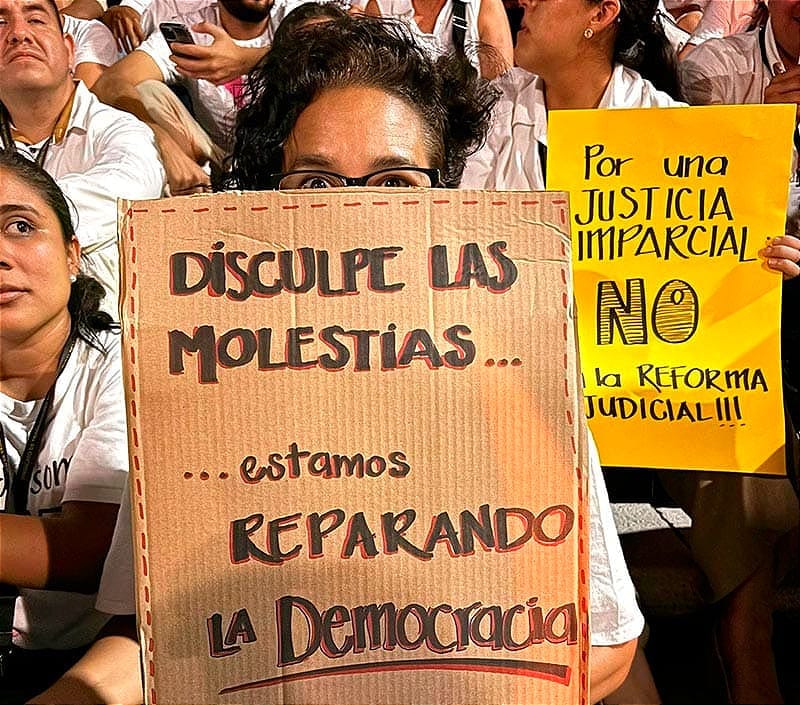 DISCULPE LAS
MOLESTIAS...
...estamos
REPARANDO
LA DEMOCRACIA
Por una
JUSTICIA
IMPARCIAL
NO
la REFORMA
JUDICIAL!!!